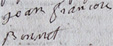 Jean francois
Bonnet